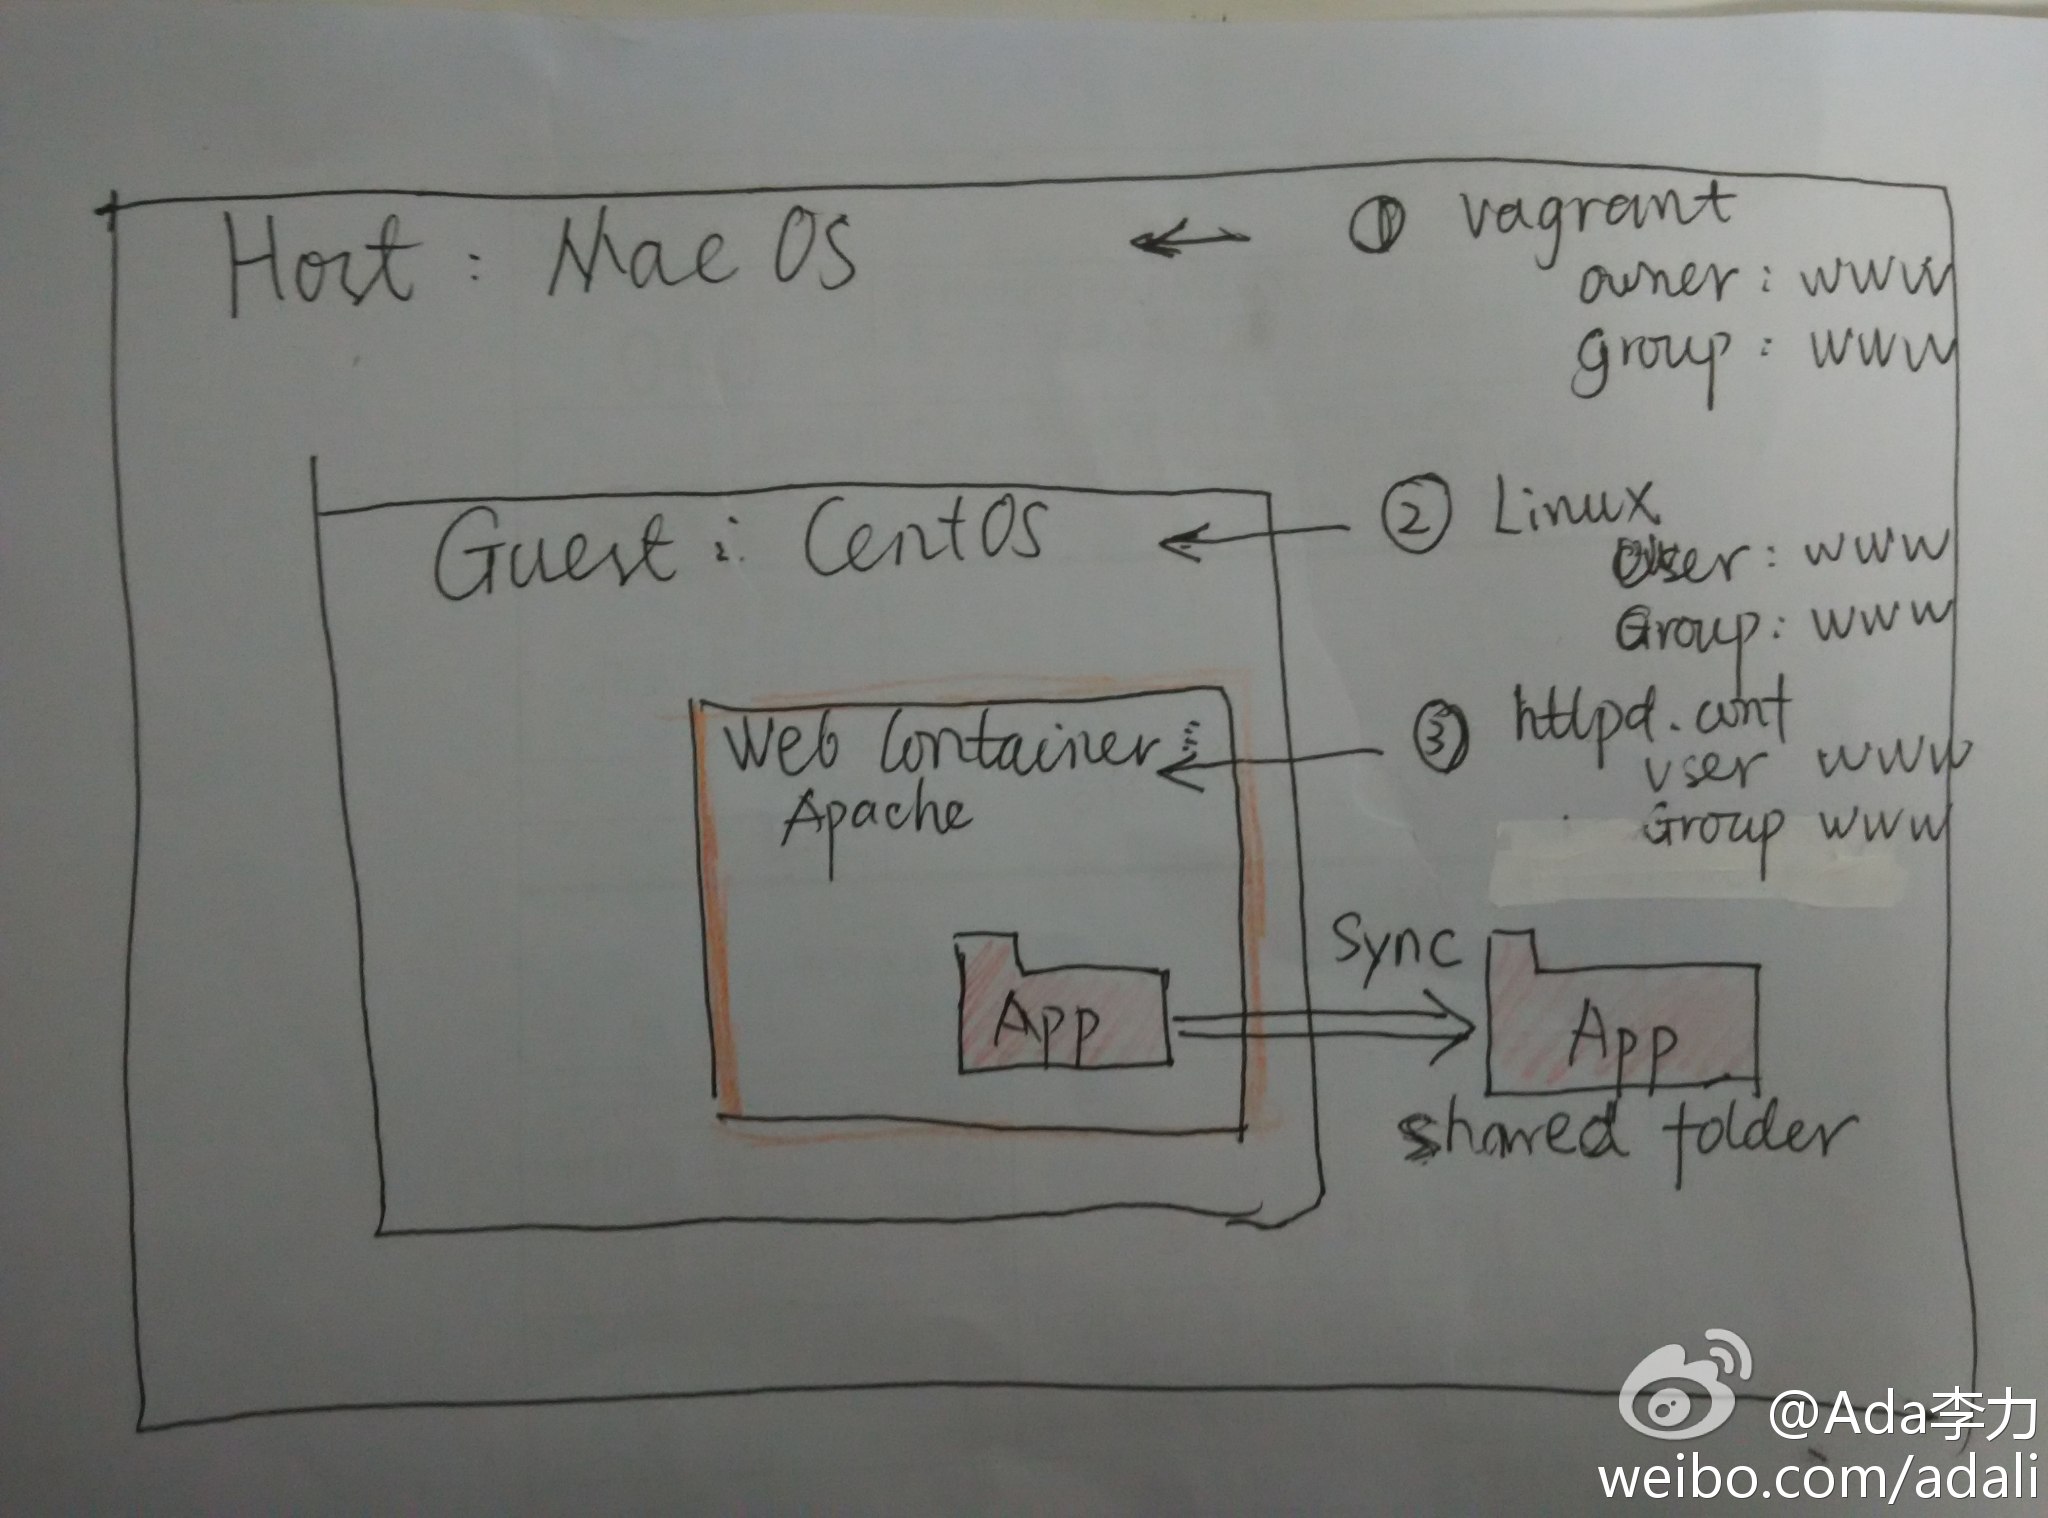 Host : Mac OS
① vagrant
owner : www
group : www
Guest : CentOS
② Linux
User : www
Group : www
Web Container :
Apache
③ httpd.conf
User www
Group www
App
Sync
App
shared folder
@Ada李力
weibo.com/adali